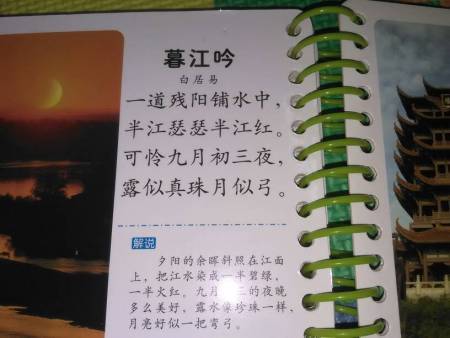 暮江吟
白居易
一道残阳铺水中，
半江瑟瑟半江红。
可怜九月初三夜，
露似真珠月似弓。
解说
夕阳的余晖斜照在江面
上，把江水染成一半碧绿，
一半火红。九月 三的夜晚
多么美好，露水像珍珠一样，
月亮好似一把弯弓。